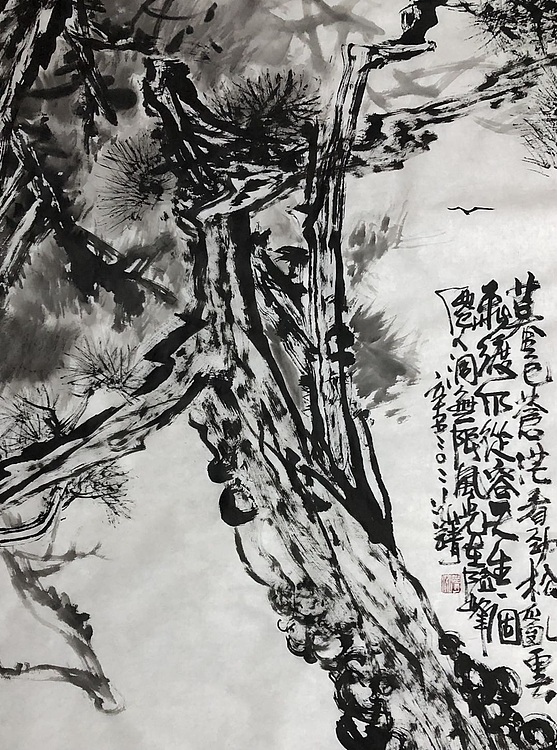 暮色蒼茫看劲松亂雲
飛渡仍從容天生一個
仙人洞無限風光在險峰